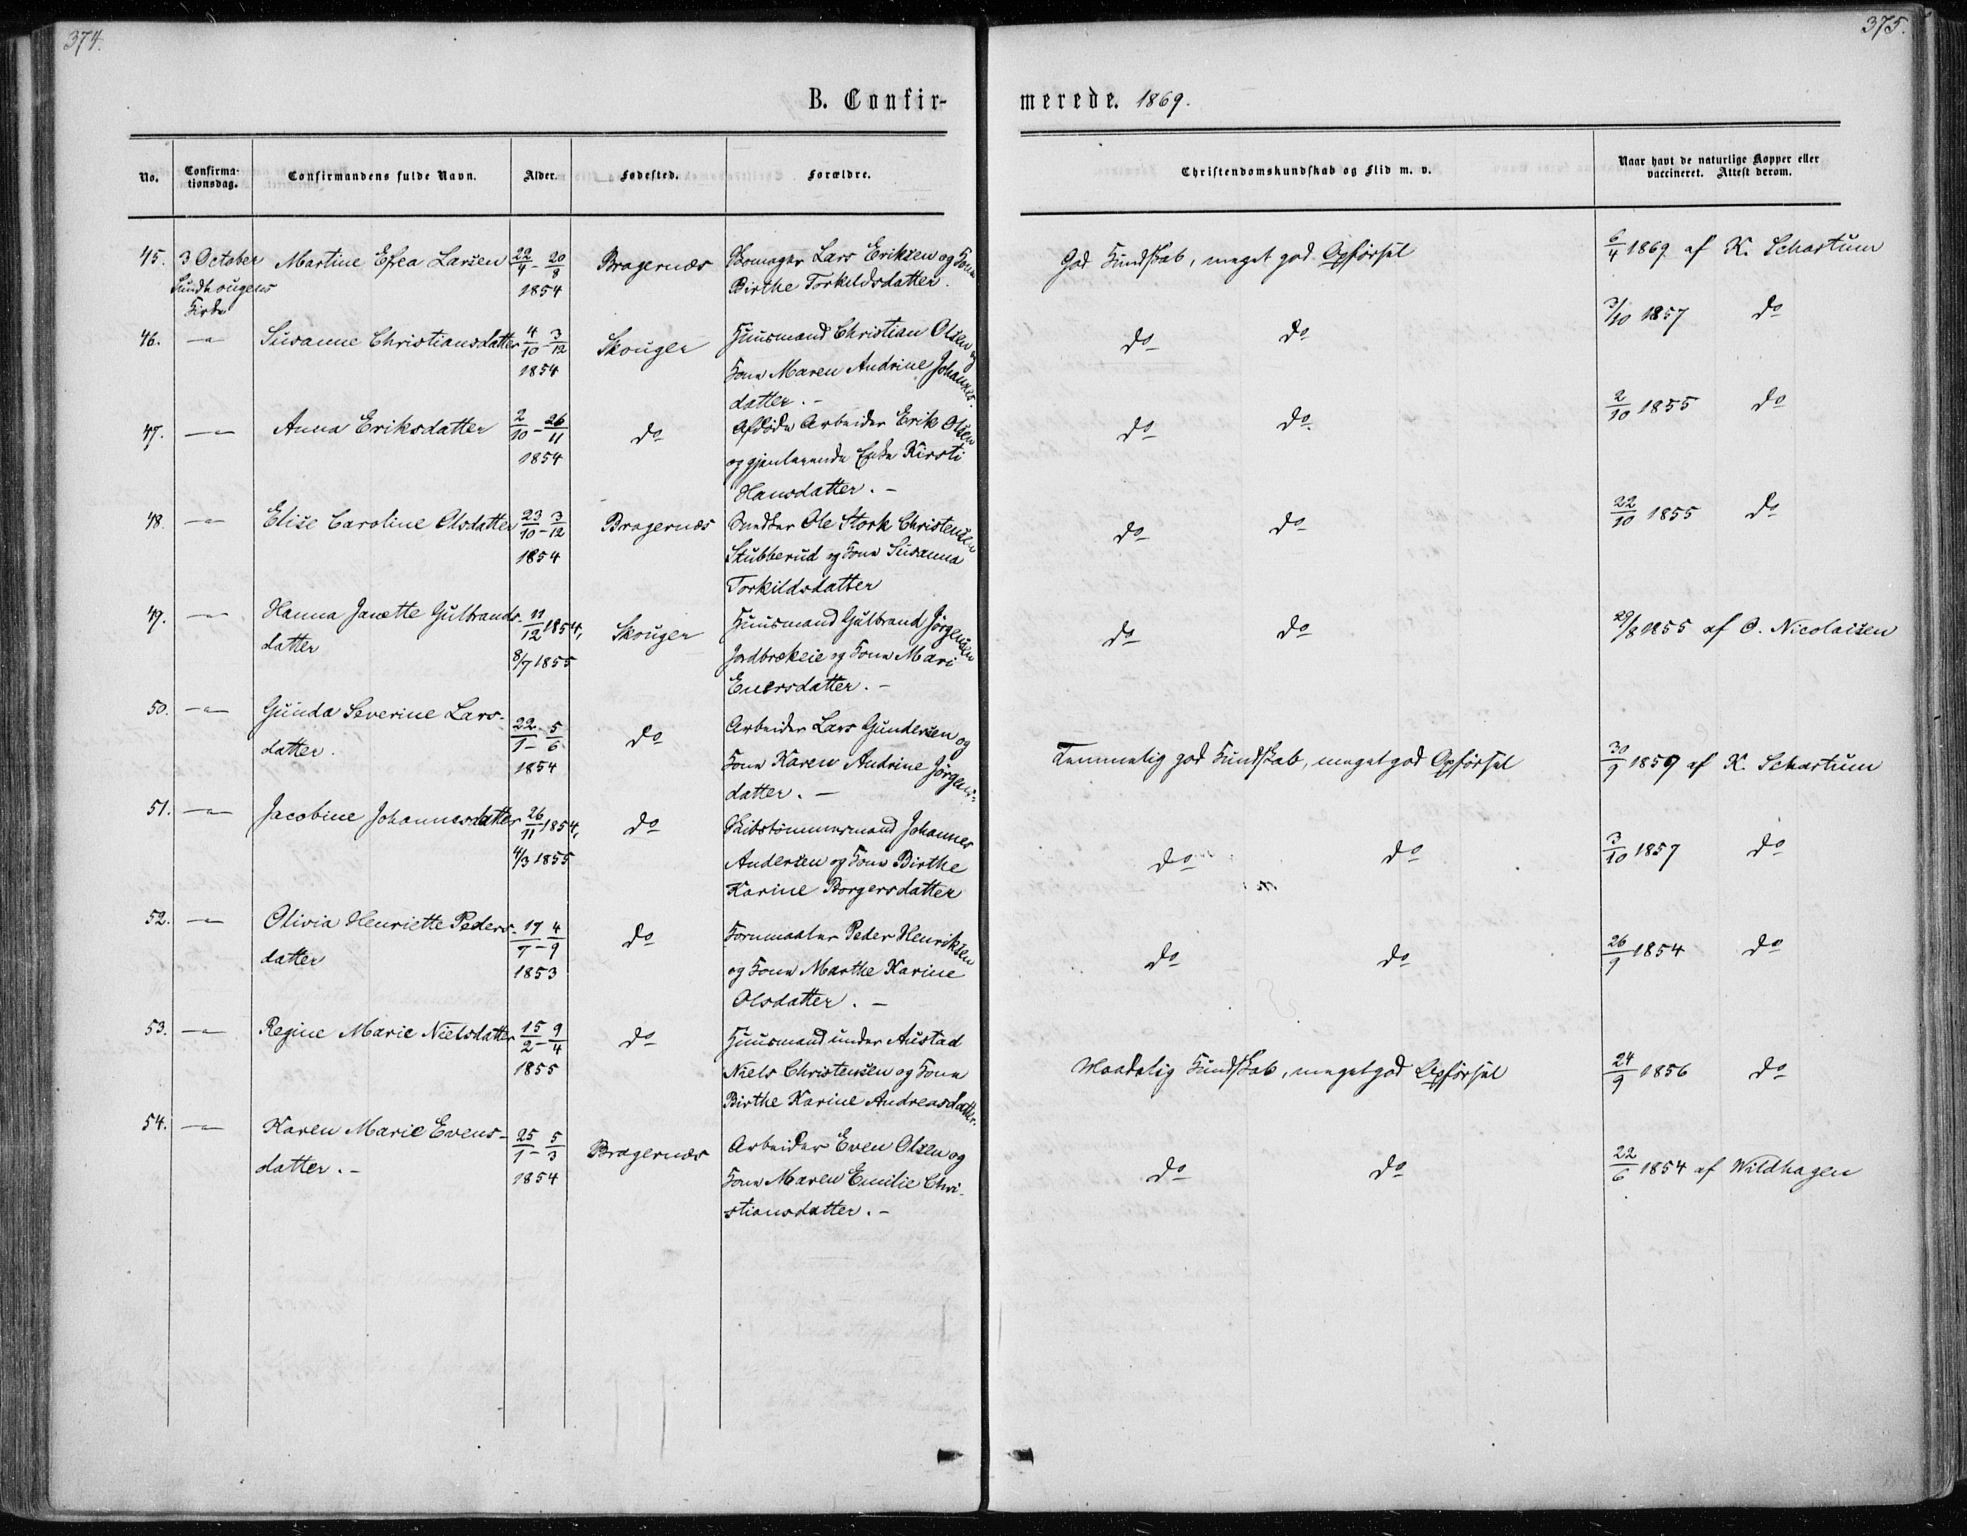 374.
375.
B. Confir-
merede. 1869.
No.
Confirma-
tionsdag.
Confirmandens fulde Navn.
Alder.
Fødested.
Forældre.
Christendomskundskab og Flid m. v.
Naar havt de naturlige Kopper eller
vaccineret. Attest derom.
45. 3 October Martine Efea Larsen 22/4 - 20/8 Bragernæs Lars Eriksen og Kone
Kirke 1854 Birthe Torkildsdatter.
God Kundskab, meget god Opførsel 6/4 1869 af K. Schartum
46. -"- Susanne Christiansdatter 4/10 - 3/12 Skouger Huusmand Christian Olsen og
1854 Kone Maren Andrine Johannes-
datter. -
do do 3/10 1857 do
47. -"- Anna Eriksdatter 2/10 - 26/11 do Afdøde Arbeider Erik Olsen
1854 og gjenlevende Enke Kirsti
Hansdatter. -
do do 2/10 1855 do
48. -"- Elise Caroline Olsdatter 23/10 - 3/12 Bragernæs Snedker Ole Stork Christensen
1854 Stubberud og Kone Susanna
Torkildsdatter
do do 22/10 1855 do
49. -"- Hanna Janette Gulbrands- 11/12 1854, Skouger Huusmand Gulbrand Jørgensen
datter 8/7 1855 Jordbrækeie og Kone Mari
Enersdatter. -
do do 29/8 1855 af O. Nicolaisen
50. -"- Gunda Severine Lars- 22/1 - 5/6 do Arbeider Lars Gundersen og
datter. 1854 Kone Karen Andrine Jørgens-
datter. -
Temmelig god Kundskab, meget god Opførsel 30/9 1859 af K. Schartum
51. -"- Jacobine Johannesdatter 26/11 1854, do Skibstømmermand Johannes
4/3 1855 Andersen og Kone Birthe
Karine Borgersdatter
do do 3/10 1857 do
52. -"- Olivia Henriette Peders- 17/7 - 4/9 do Kornmaaler Peder Henriksen
datter 1853 og Kone Marthe Karine
Olsdatter. -
do do 26/9 1854 do
53. -"- Regine Marie Nielsdatter 15/2 - 9/4 do Huusmand under Austad
1855 Niels Christensen og Kone
Birthe Karine Andreasdatter.
Maadelig Kundskab, meget god Opførsel 24/9 1856 do
54. -"- Karen Marie Evens- 25/1 - 5/3 Bragernæs Arbeider Even Olsen og
datter. - 1854 Kone Maren Emilie Chri-
stiansdatter. -
do do 22/6 1854 af Wildhagen